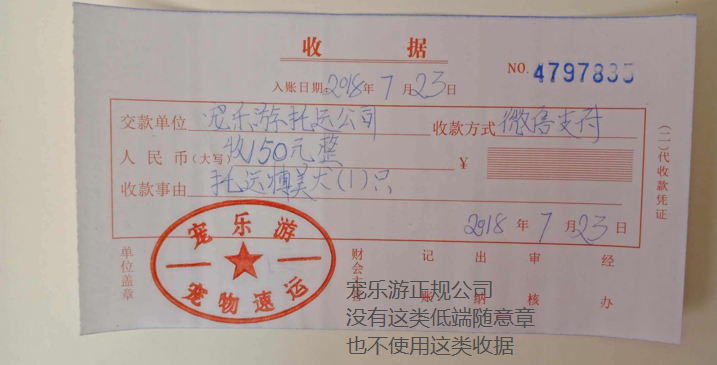 收 据
NO. 4797835
入账日期:2018年7月23日
交款单位 宠乐游托运公司 收款方式 微信支付
人民币(大写) 收150元整 ¥
收款事由 托运博美犬(1)只
(二)代收款凭证
2018年7月23日
单位盖章
宠乐游
宠物速运
财会主管 记账 出纳 审核 经办
宠乐游正规公司
没有这类低端随意章
也不使用这类收据